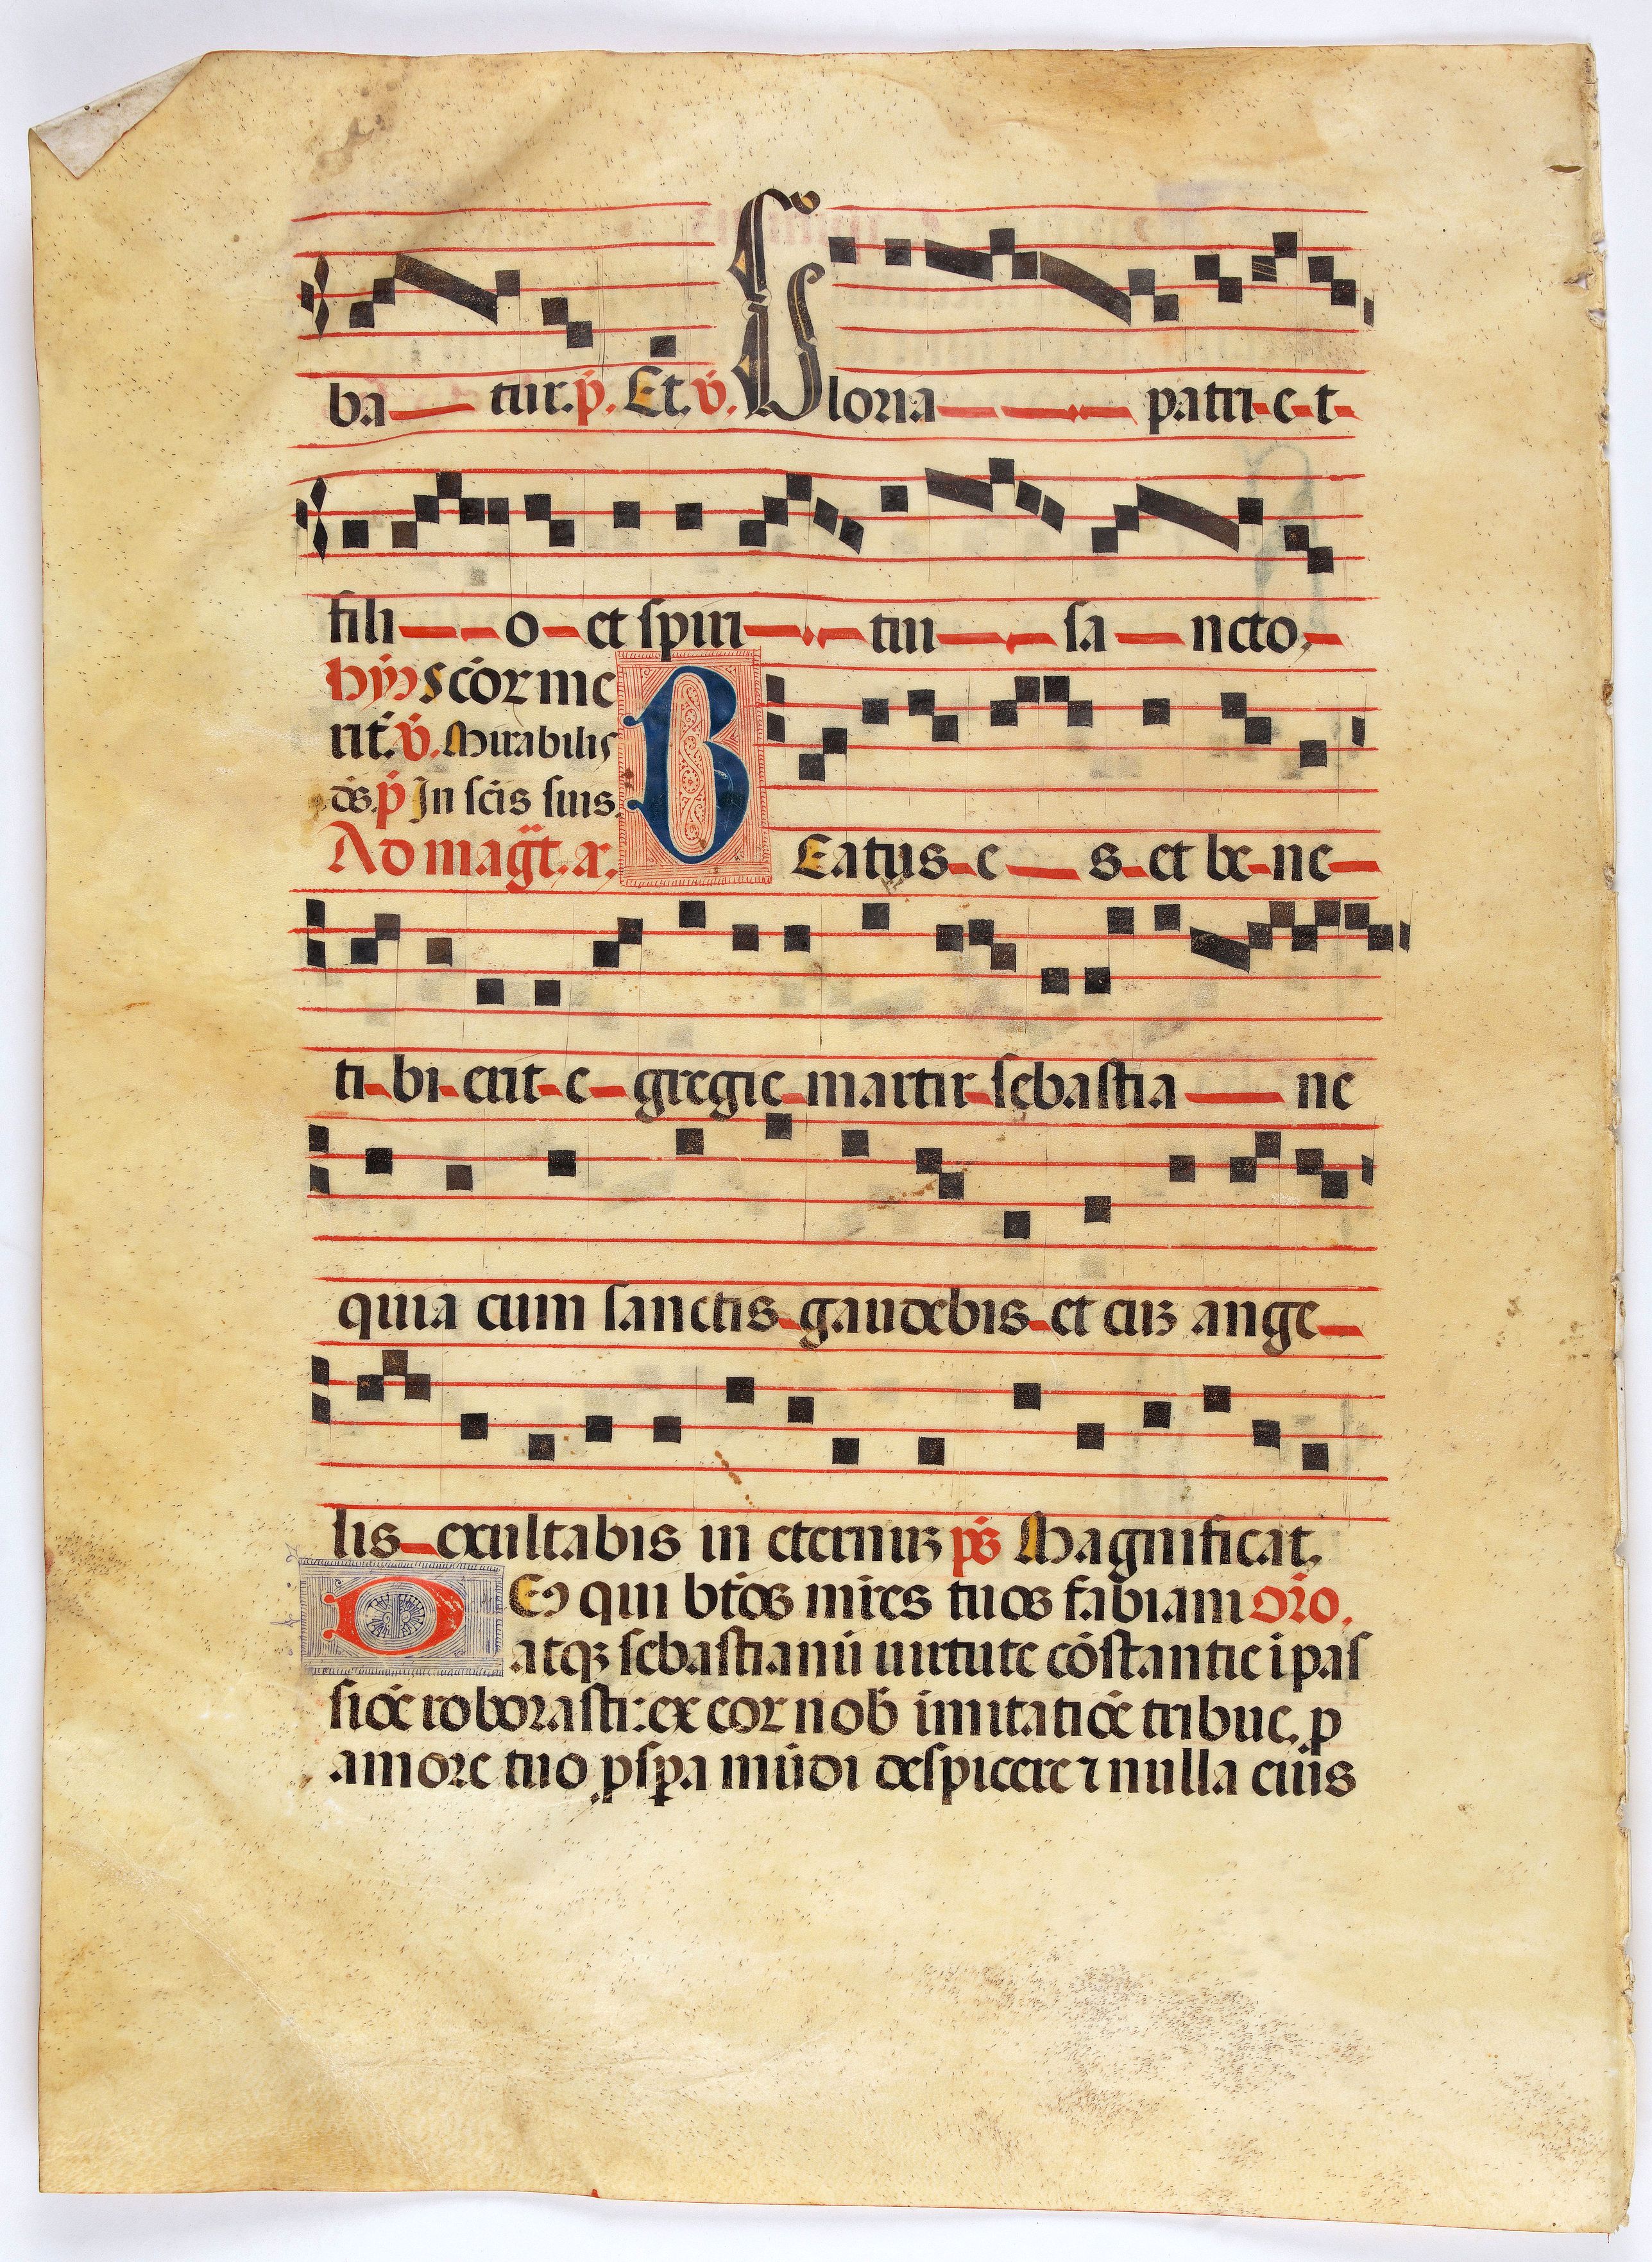 ba tur. p̄. Et. v̄. Gloria patri et
filio et spiritui sancto.
hỹ Sc̄oꝝ me
rit̄. v̄. Mirabilis
ds. p̄ In sc̄is suis.
Ad mag̃t. a.
BEatus es et bene
tibi erit egregie martir sebastiane
quia cum sanctis gaudebis et cuȝ ange
lis exultabis in eternuȝ ps̄ Magnificat.
DEꝰ qui bt̄os mr̄es tuos fabiam or̄o.
atqȝ sebastianū uirtute cōstantie ī pas
siōe roborasti: ex eoꝝ nob̄ imitatiōe tribue. p
amore tuo ꝓspa mūdi despicere ⁊ nulla eius